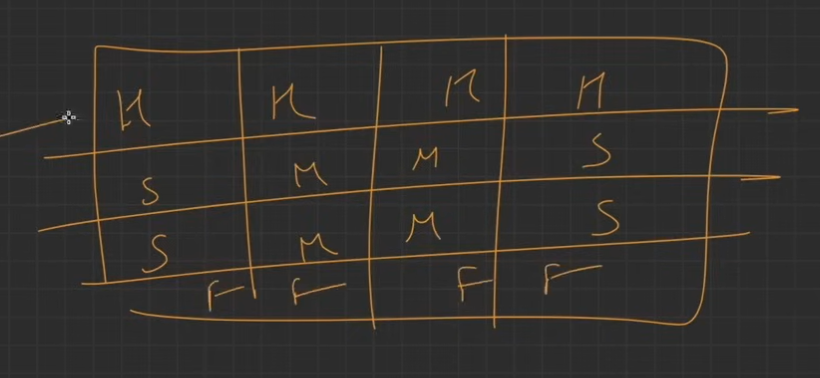 H H H H
S M M S
S M M S
F F F F